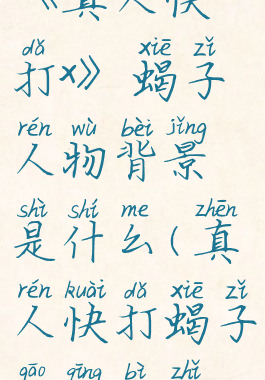 《真人快
dǎ xiē zǐ
打×》 蝎子
rén wù bèi jǐng
人物背景
shì shí me zhēn
是什么(真
rén kuài dǎ xiē zǐ
人快打蝎子
gāo qīng bì zhǐ